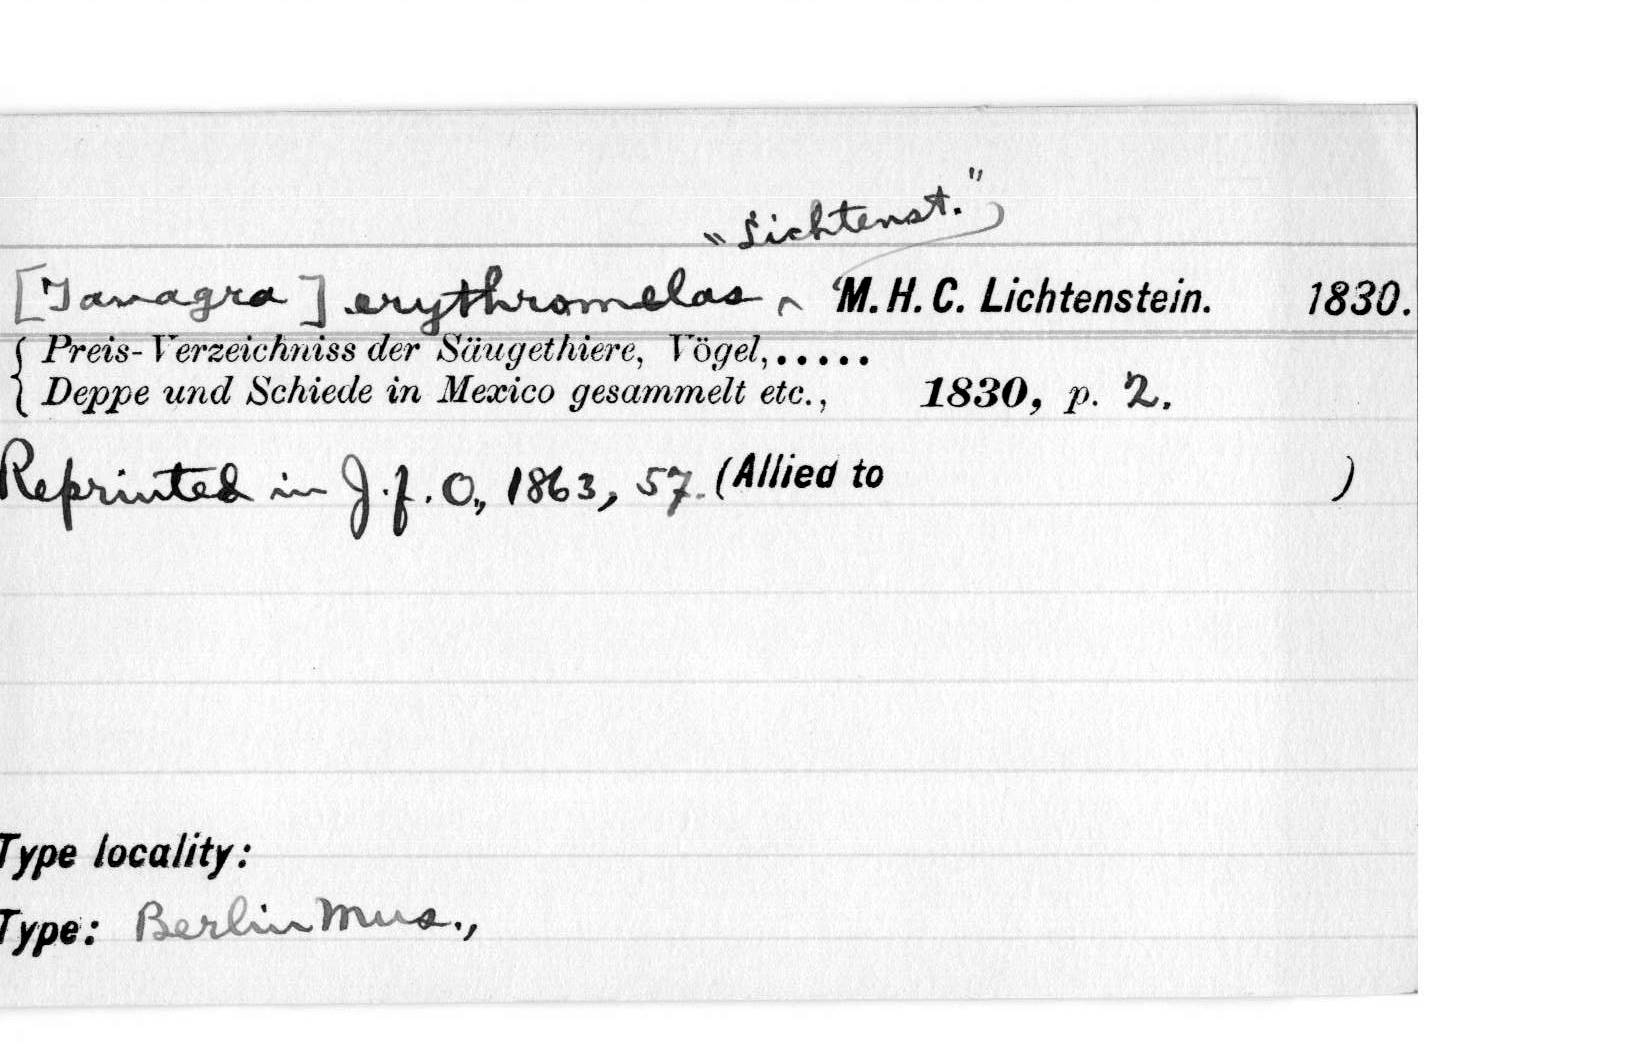 "Lichtenst."
[Tanagra] erythromelas ‸ M. H. C. Lichtenstein. 1830.
Preis-Verzeichniss der Säugethiere, Vögel,.....
Deppe und Schiede in Mexico gesammelt etc., 1830, p. 2.
Reprinted in J.f.O., 1863, 57. (Allied to )
Type locality:
Type: Berlin Mus.,